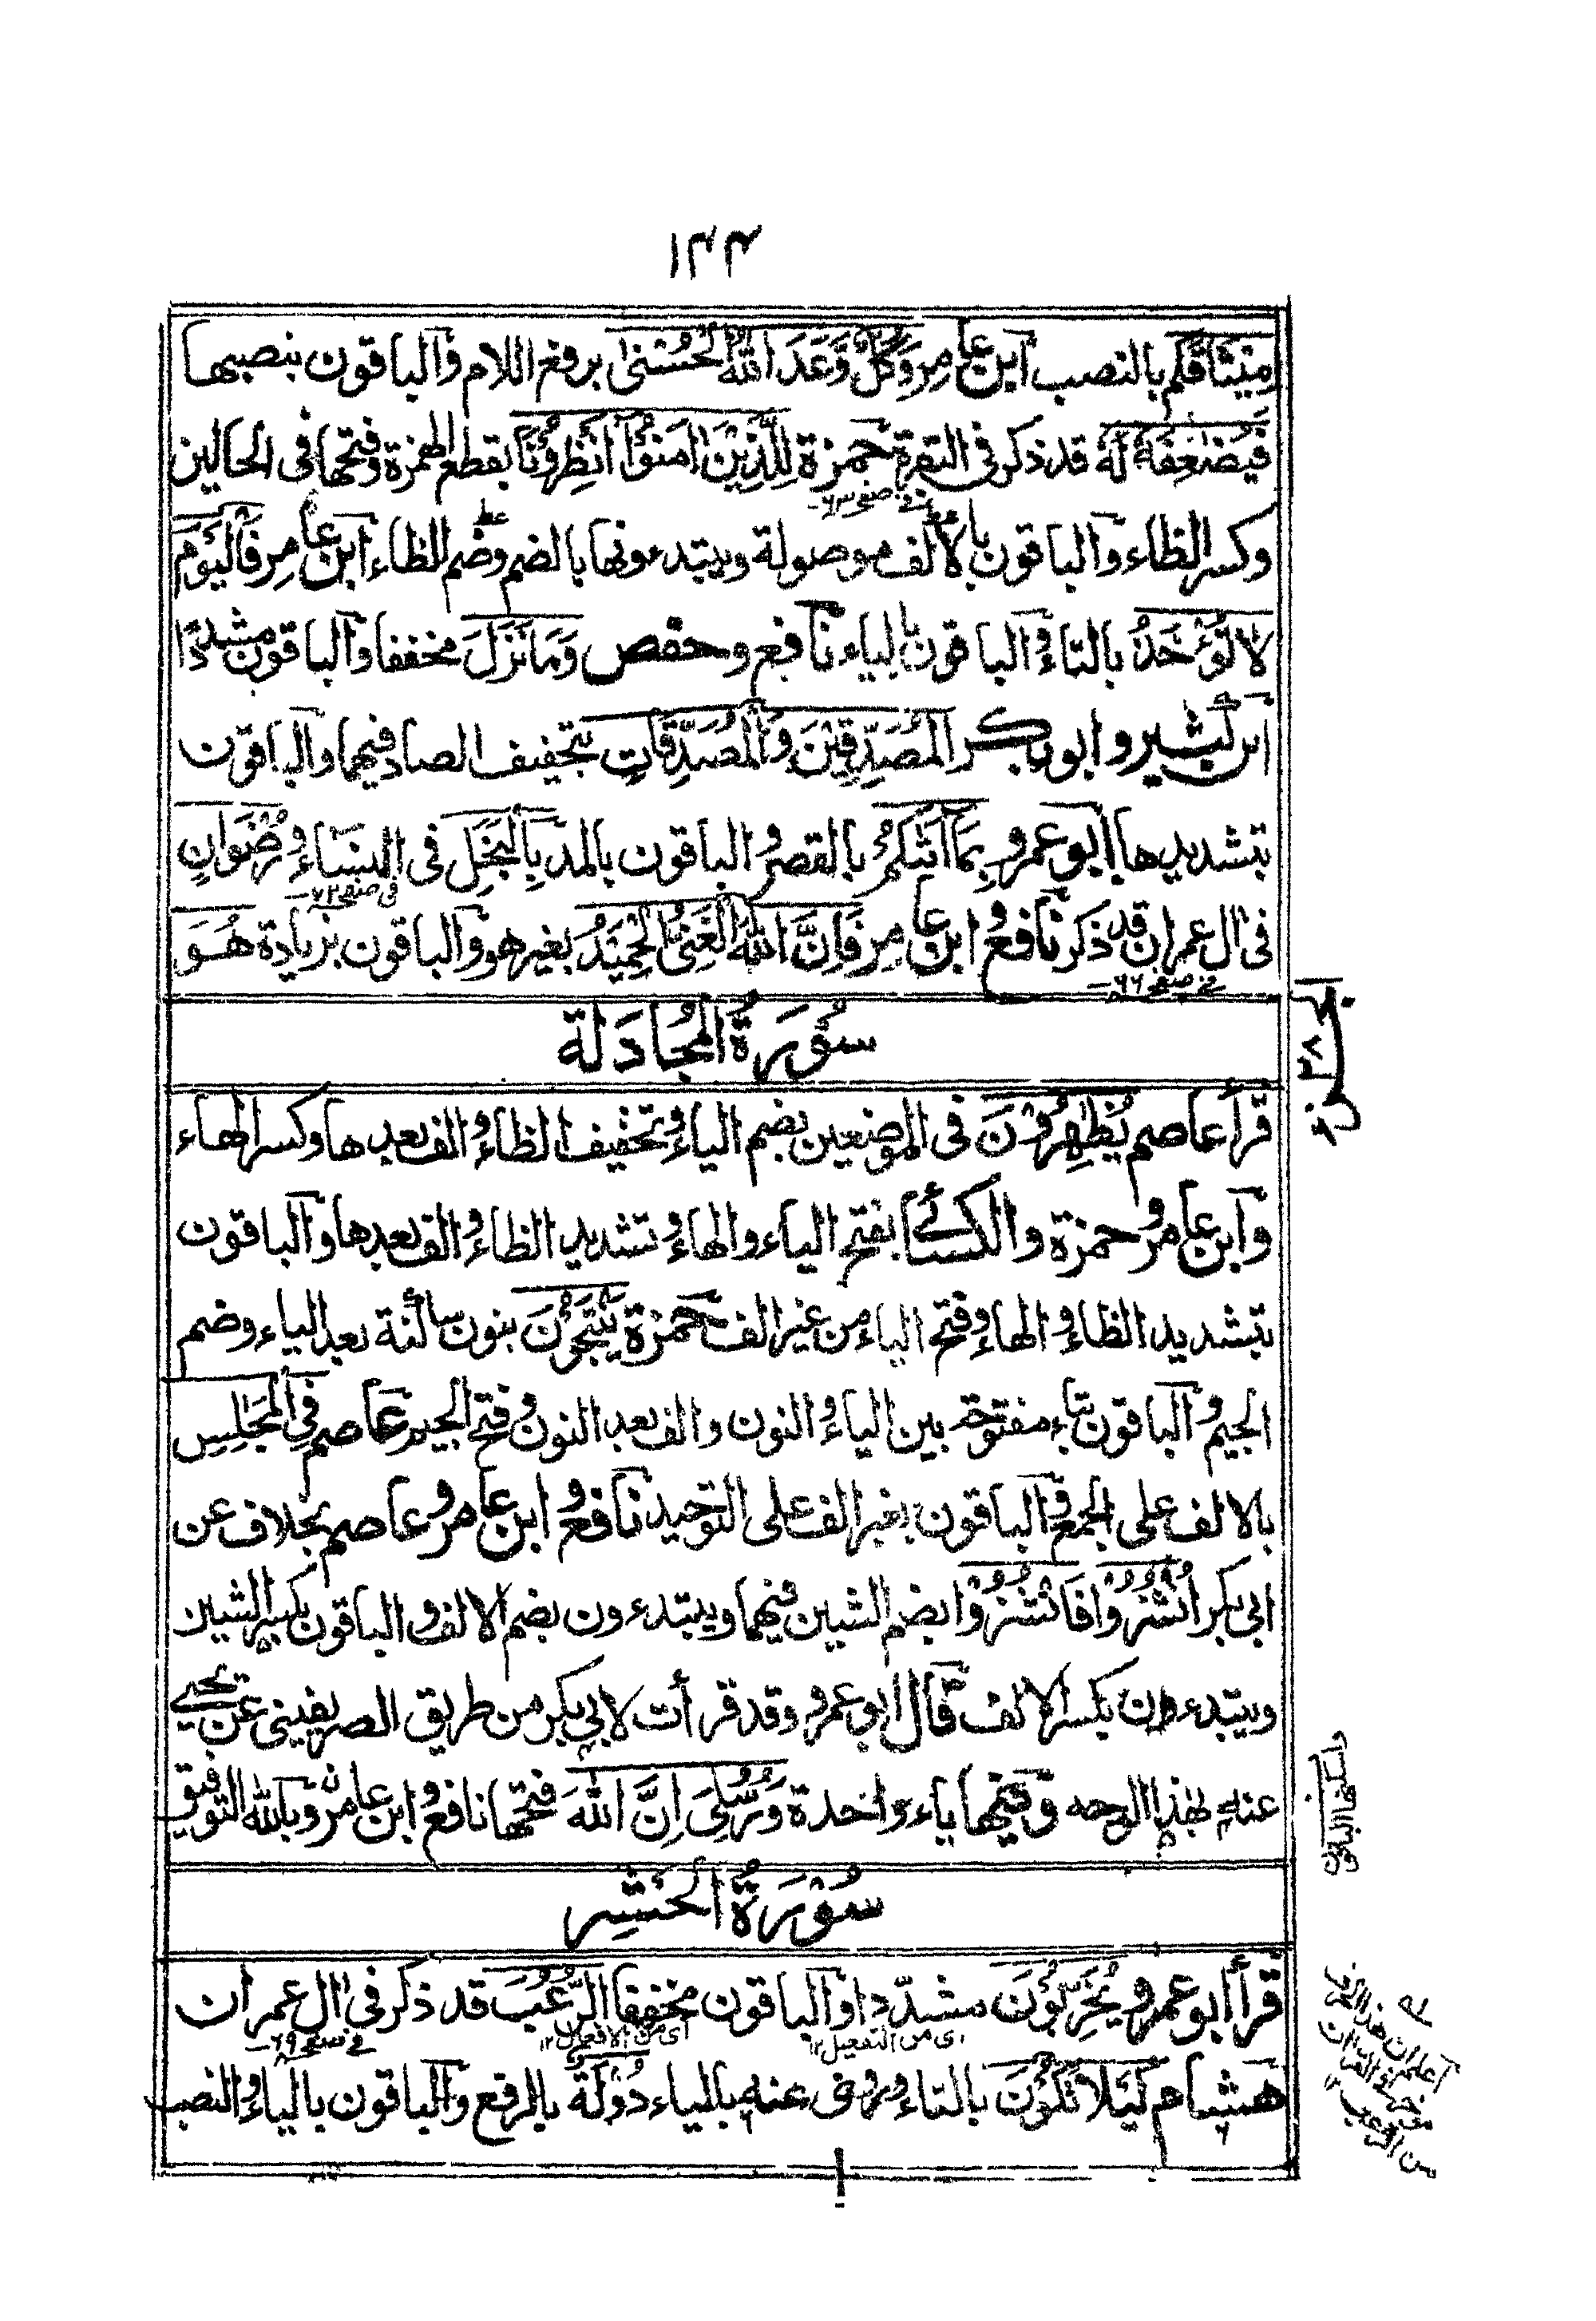 ١٣٣
مِيْثَاقَكُمْ بالنصب ابن عامر وَكُلٌّ وَّعَدَ اللّٰهُ الْحُسْنٰى برفع اللام والباقون بنصبها
فَيُضٰعِفَهٗ لَهٗ قد ذكر فى البقرة حمزة لِلَّذِيْنَ اٰمَنُوْا انْظُرُوْنَا بقطع الهمزة وفتحها فى الحالين
فے صفحہ ٦٣
وكسر الظاء والباقون بالالف موصولة ويبتدءونها بالضم وضم الظاء ابن عامر فَالْيَوْمَ
لَا تُؤْخَذُ بالتاء والباقون بالياء نافع وحفص وَمَا نَزَلَ مخففا والباقون مشددًا
ابن كثير وابو بكر الْمُصَدِّقِيْنَ وَالْمُصَدِّقَاتِ بتخفيف الصاد فيهما والباقون
بتشديدها ابو عمرو بِمَا اَتٰكُمْ بالقصر والباقون بالمد بِالْبُخْلِ فى النساء ورِضْوَانٍ
فى صفحہ ٧٣
فى اٰل عمران قد ذكر نافع وابن عامر فَاِنَّ اللّٰهَ الْغَنِىُّ الْحَمِيْدُ بغير هو والباقون بزيادة هُوَ
فے صفحہ ٦٦
سُوْرَةُ الْمُجَادَلَة
الجزء ٢٨
قرأ عاصم يُظٰهِرُوْنَ فى الموضعين بضم الياء وتخفيف الظاء والف بعدها وكسر الهاء
وابن عامر وحمزة والكسائے بفتح الياء والهاء وتشديد الظاء والف بعدها والباقون
بتشديد الظاء والهاء وفتح الياء من غير الف حمزة يَنْتَجُوْنَ بنون ساكنة بعد الياء وضم
الجيم والباقون بتاء مفتوحة بين الياء والنون والف بعد النون وفتح الجيم عاصم فِى الْمَجٰلِسِ
بالالف على الجمع والباقون بغير الف على التوحيد نافع وابن عامر وعاصم بخلاف عن
ابى بكر انْشُزُوْا فَانْشُزُوْا بضم الشين فيهما ويبتدءون بضم الالف والباقون بكسر الشين
ويبتدءون بكسر الالف قال ابو عمرو وقد قرأت لابى بكر من طريق الصريفينى عن يحيى
عنه بهذا الوجه وفيها ياء واحدة وَرُسُلِىَ اِنَّ اللّٰهَ فتحها نافع وابن عامر وبالله التوفيق
واسكنها الباقون
سُوْرَةُ الْحَشْرِ
قرأ ابو عمرو يُخَرِّبُوْنَ مشدّدا والباقون مخففا الرُّعْبَ قد ذكر فى اٰل عمران
اى من التفعيل١٢ اى من الافعال١٢ فے صفحہ ٦٩
هشام كَيْلَا تَكُوْنَ بالتاء وروى عنه بالياء دُوْلَةٌ بالرفع والباقون بالياء والنصب